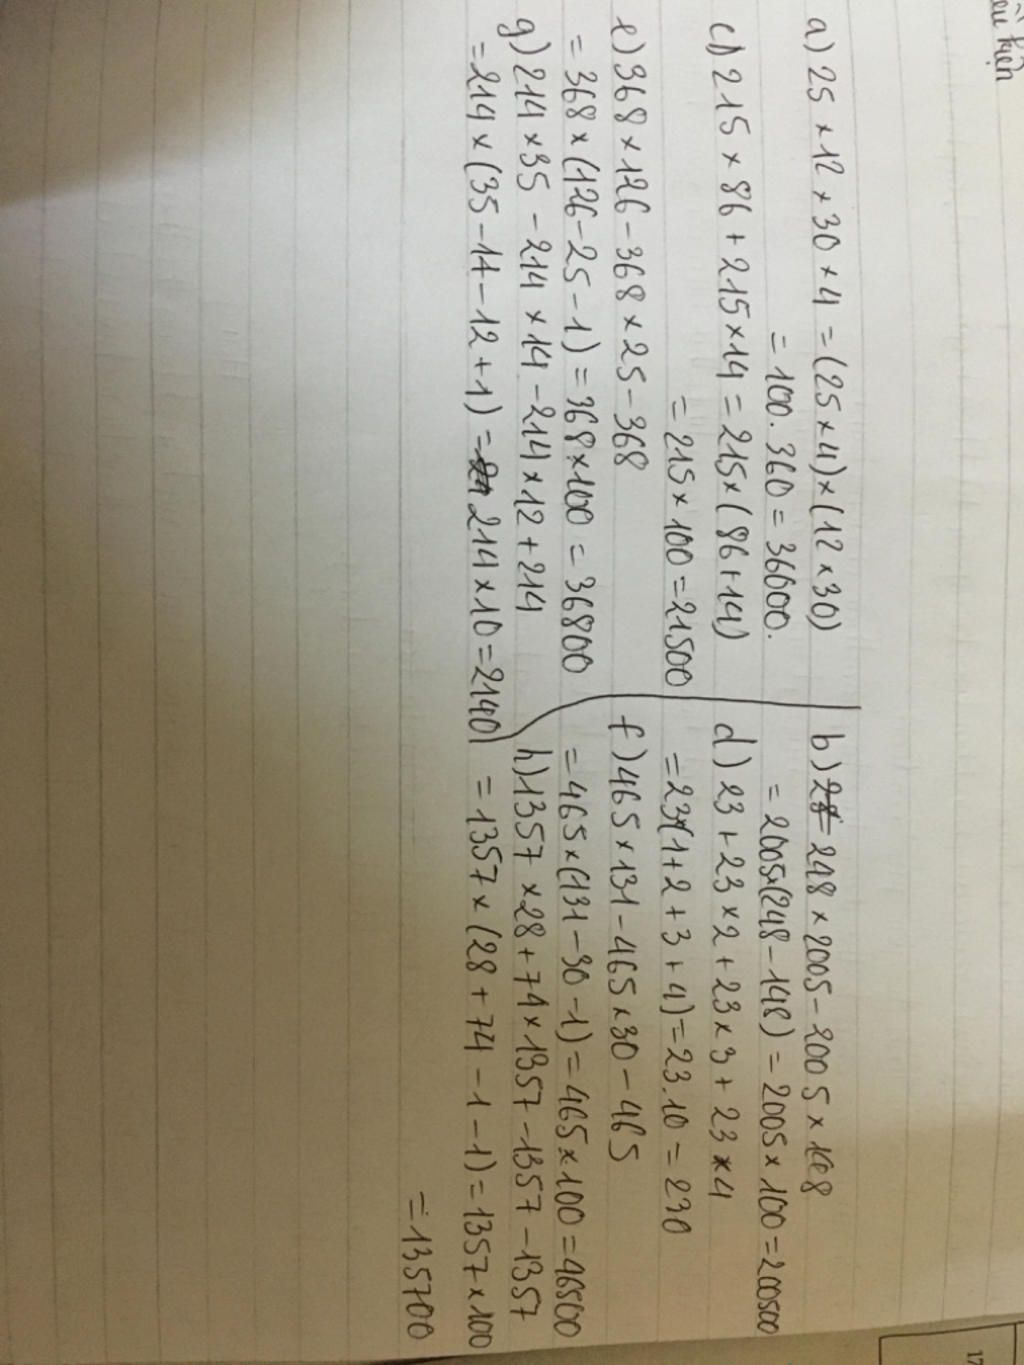 ều kiện
a) 25 × 12 × 30 × 4 = (25 × 4) × (12 × 30)
= 100 . 360 = 36000.
c) 215 × 86 + 215 × 14 = 215 × (86 + 14)
= 215 × 100 = 21500
e) 368 × 126 - 368 × 25 - 368
= 368 × (126 - 25 - 1) = 368 × 100 = 36800
g) 214 × 35 - 214 × 14 - 214 × 12 + 214
= 214 × (35 - 14 - 12 + 1) = 214 × 10 = 2140
b) 248 × 2005 - 2005 × 148
= 2005 × (248 - 148) = 2005 × 100 = 200500
d) 23 + 23 × 2 + 23 × 3 + 23 × 4
= 23 × (1 + 2 + 3 + 4) = 23 . 10 = 230
f) 465 × 131 - 465 × 30 - 465
= 465 × (131 - 30 - 1) = 465 × 100 = 46500
h) 1357 × 28 + 74 × 1357 - 1357 - 1357
= 1357 × (28 + 74 - 1 - 1) = 1357 × 100
= 135700
17